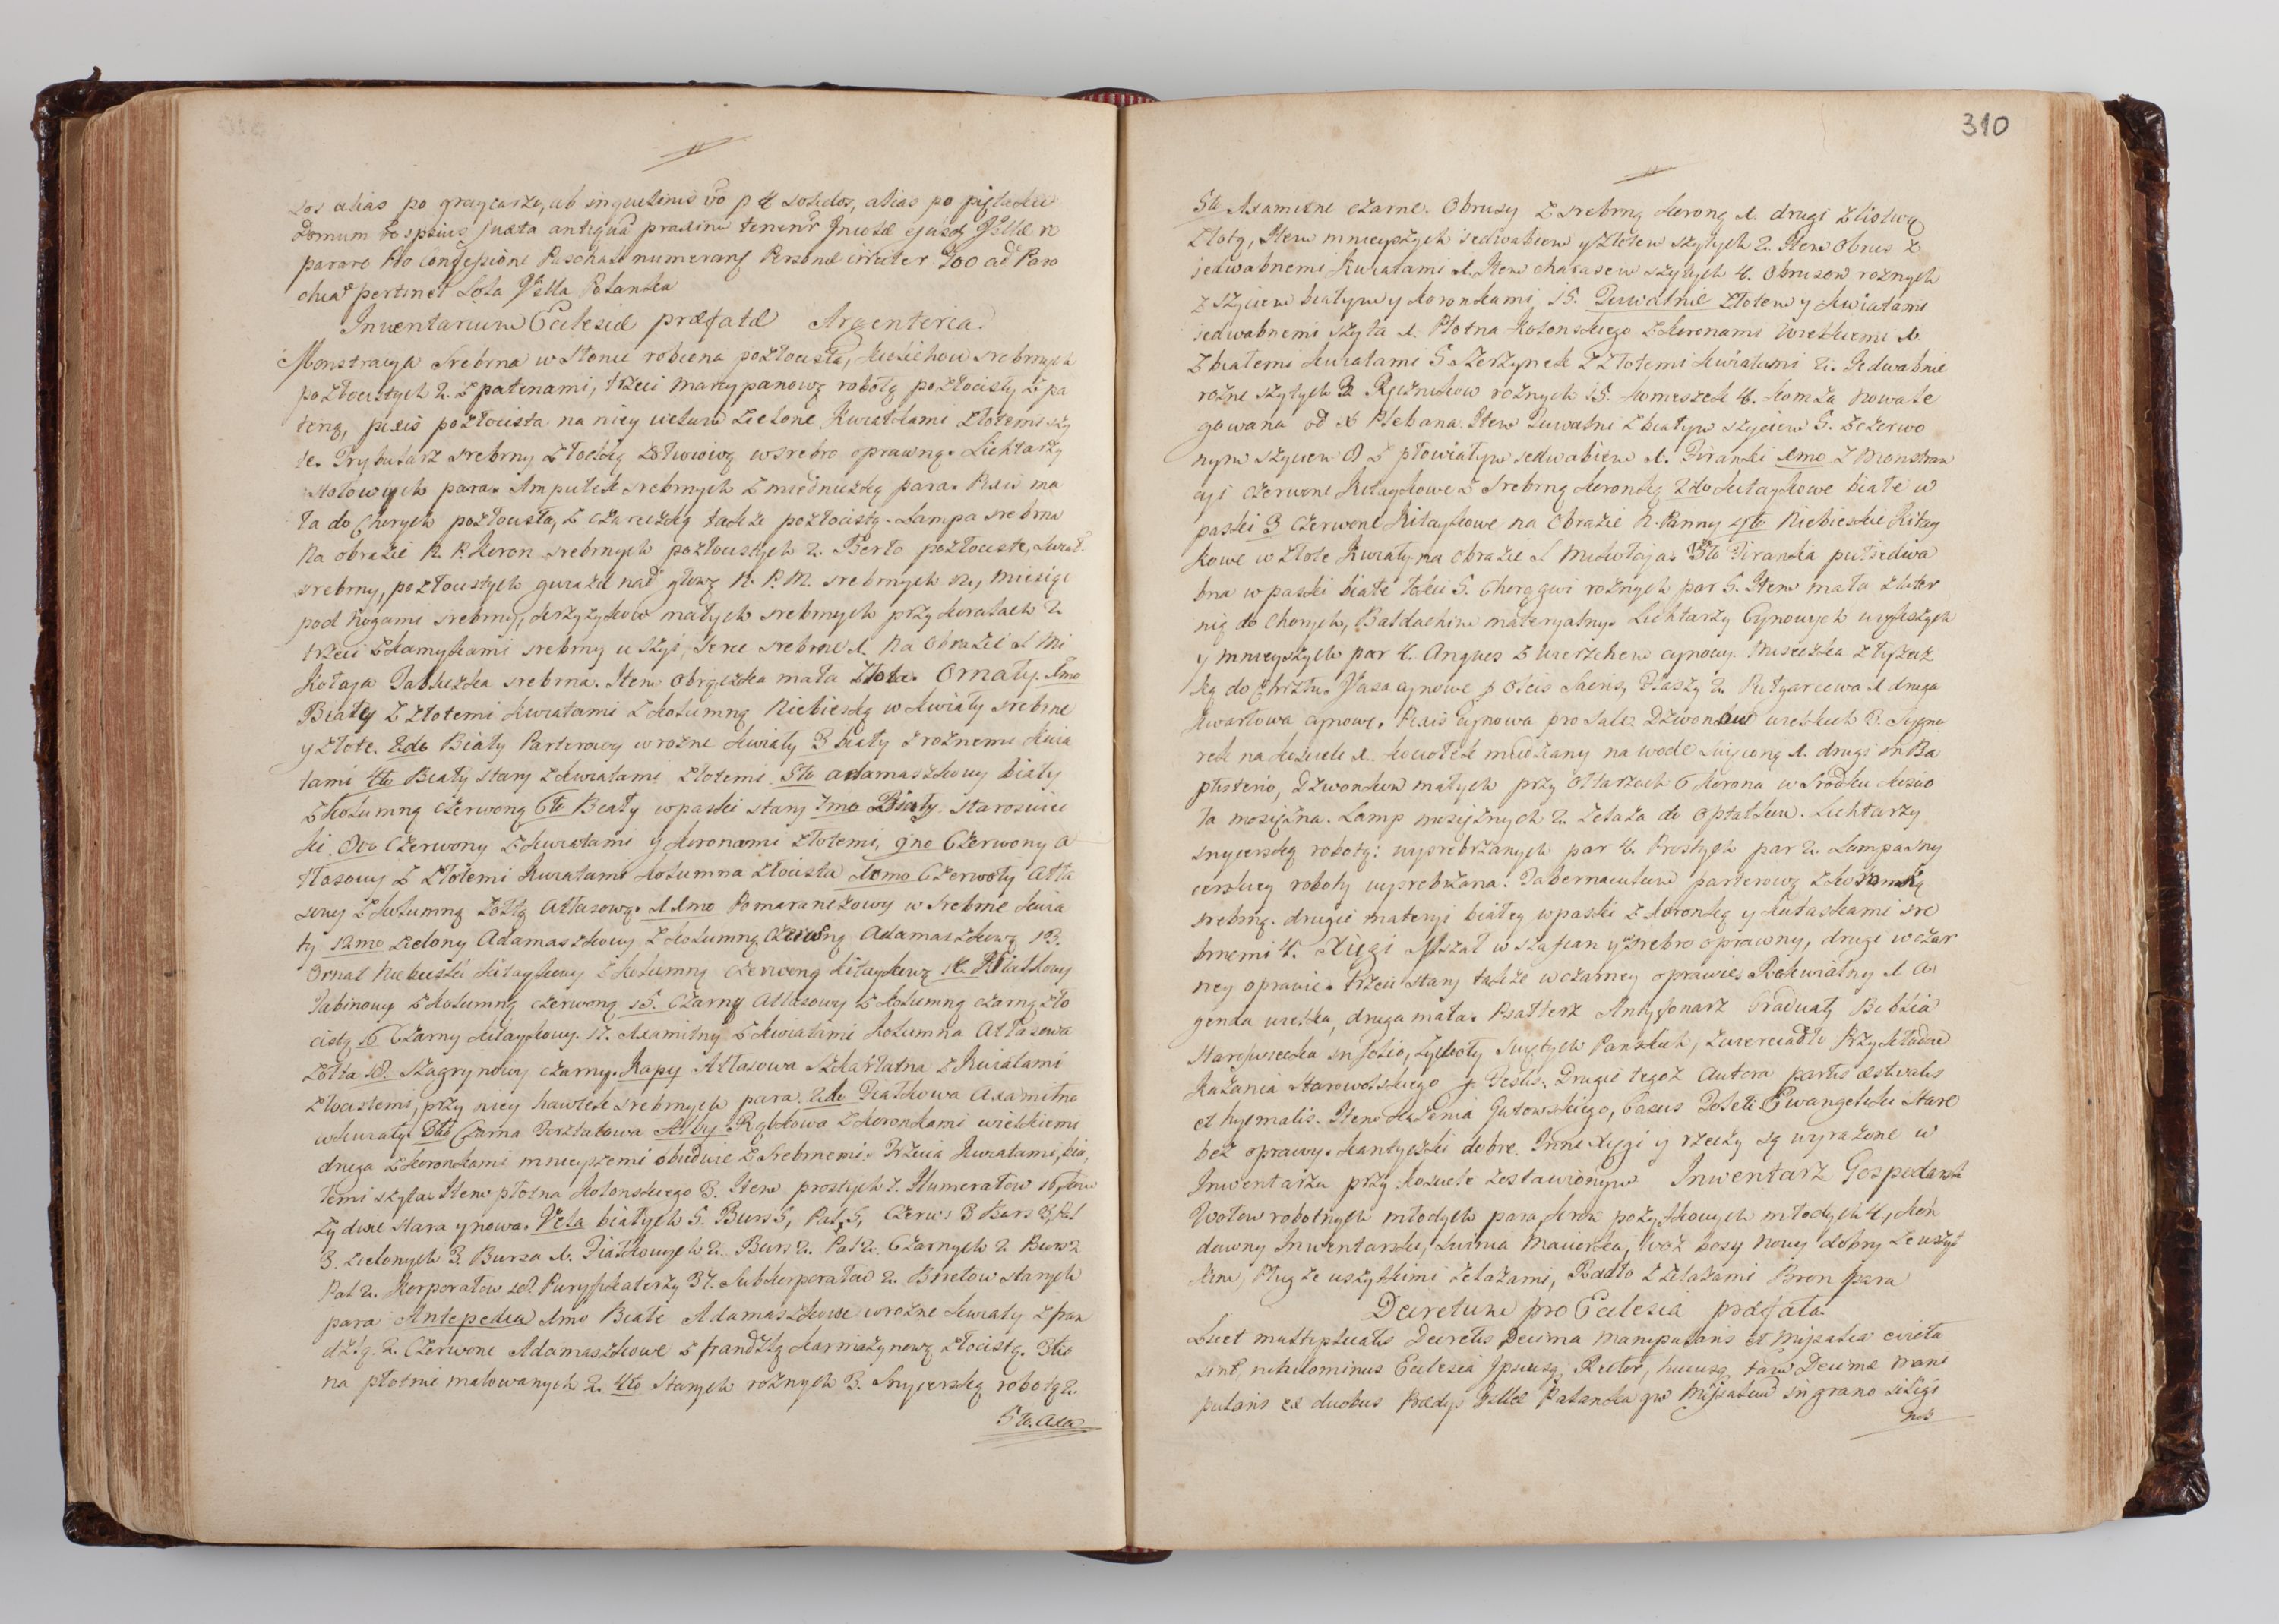 sos alias po graycarze, ab inquilinis vo p 4 solidos, alias po piętaku
Domum Hospitius juxta antiqua praxim tenent Incolae ejusdem Villae re
parare Pro confessione Paschali numerans Personae circiter 700 ad Paro
chia pertinet Sola Villa Palanka
Inventarium Ecclesiae praefatae Argenteria.
Monstrancya srebrna w słońce robiona pozłocista, kielichow srebrnych
pozłocistych 2. z patenami, trzeci marcypanową robotą pozłocisty z pa
teną, puxis pozłocista na niey velum zielone kwiatkami złotemi szy
te. Trybularz srebrny z łodką żółwiową w srebro oprawną. Lichtarzy
stołowych para. Ampułek srebrnych z miedniczką para. Puxis ma
ła do Chorych pozłocista, z czareczką także pozłocistą. Lampa srebrna
Na obrazie N. P. Koron srebrnych pozłocistych 2. Berło pozłociste, kwiat
srebrny, pozłocistych gwiazd nad głową N. P. M. srebrnych szy, miesiąc
pod nogami srebrny, krzyżykow małych srebrnych przy koralach 2
trzeci z kamykami srebrny u szyi, serce srebrne 1. Na obrazie S. Mi
kołaja Tabliczka srebrna. Item obrączka mała złota. Ornaty. 1mo
Biały z złotemi kwiatami z kolumną niebieską w kwiaty srebrne
y złote. 2do Biały Parterowy w rożne kwiaty 3 biały z rożnemi kwia
tami 4to Biały stary z kwiatami złotemi. 5to adamaszkowy biały
z kolumną czerwoną 6to Biały w paski stary 7mo Biały staroswiec
ki. 8vo Czerwony z kwiatami y koronami złotemi, 9no Czerwony a
tłasowy z złotemi kwiatami kolumna złocista 10mo Czerwony atła
sowy z kolumną żółtą atłasową. 11mo Pomarańczowy w srebrne kwia
ty 12mo zielony Adamaszkowy z kolumną czerwoną Adamaszkową 13.
Ornat niebieski kitaykowy z kolumną czerwoną kitaykową 14. Fiałkowy
Tabinowy z kolumną czerwoną 15. Czarny atłasowy z kolumną czarną zło
cistą 16 Czarny kitaykowy. 17. Axamitny z kwiatami kolumna Atłasowa
żółta 18. szagrynowy czarny. Kapy Atłasowa szkarłatna z kwiatami
złocistemi, przy niey hawtek srebrnych para. 2do Fiałkowa axamitna
w kwiaty. 3tio Czarna Terzłatowa Alby Rąbkowa z koronkami wielkiemi
druga z koronkami mnieyszemi obiedwie z srebrnemi. Trzecia kwiatami bia,
łemi szyta. Item płotna kolonskiego 3. Item prostych 7. Humerałow 16,
ży dwie stara y nowa. Vela białych 5. Burs 5, Pal. 5, Czerw: 3 Burs 3, Pal
3. zielonych 3. Bursa 1. Fiałkowych 2. Burs 2. Pal 2. Czarnych 2 Burs 2
Pal 2. Korporałow 18. Puryfikaterzy 37. Subkorporałow 2. Biretow starych
para Antepedia 1mo Białe Adamaszkowe w rożne kwiaty z fran
dzlą. 2. Czerwone Adamaszkowe z frandzlą karmazynową złocistą. 3tio
na płotnie malowanych 2. 4to starych rożnych 3. Snycerską robotą 2.
5to. axa
310
5to Axamitne czarne. Obrusy z srebrną koroną 1. drugi z listwą
złotą, Item mnieyszych jedwabiem y złotem szytych 2. Item obrus z
jedwabnemi kwiatami 1. Item charasem szytych 4. Obrusow rożnych
z szyciem białym y koronkami 15. Tuwalnie złotem y kwiatami
jedwabnemi szyta 1. Płotna kolonskiego z koronami wielkiemi 1.
z białemi kwiatami 5 a szerzynek z złotemi kwiatami 2. Jedwabnie
rożne szytych 3 Ręcznikow rożnych 15. komeszek 4. komża nowa le
gowana od X Plebana. Item Tuwalni z białym szyciem 5. z czerwo
nym szyciem 8 z płowiatym jedwabiem 1. Firanki 1mo z monstran
cyi czerwone kitaykowe z srebrną koronką 2do kitaykowe białe w
paski 3 czerwone kitaykowe na obrazie N. Panny 4to Niebieskie kitay
kowe w złote kwiaty na obrazie S. Mikołaja. 5to Firanka pułjedwa
bna w paski białe takie 5. Chorągwi rożnych par 5. Item mała z later
nią do Chorych, Baldachim materyalny. Lichtarzy Cynowych większych
y mnieyszych par 4. Angues z wierzchem cynowy. Miseczka z łyżecz
ką do Chrztu. Vasa cynowe p Oleis Sacris, Flaszy 2. Puługarcowa 1 druga
kwartowa cynowe. Puxis cynowa pro sale. Dzwonow wielkich 3. Sygna
rek na kościele 1. kociołek miedziany na wodę święconą 1. drugi in Ba
ptisterio, Dzwonkow małych przy ołtarzach 6 korona w środku kościo
ła mosiężna. Lamp mosiężnych 2. żelaza do opłatkow. Lichtarzy
snycerską robotą: wysrebrzanych par 4. Prostych par 2. Lampa sny
cerskiey roboty wysrebrzana. Tabernaculum parterową z koronką
srebrną. drugie materyi białey w paski z koronką y kutaskami sre
brnemi 4. Xięgi Mszał w szafian y w srebro oprawny, drugi w czar
ney oprawie. trzeci stary także w czarney oprawie. Rekwialny 1 A
genda wielka, druga mała. Psałterz Antyfonarz Graduały Biblia
Staroswiecka in folio, żywoty Świętych Panskich, zwierciadło Przykładow
Kazania Starowolskiego p Festis. Drugie tegoż autora partis aestivalis
et hyemalis. Item kazania Gutowskiego, Casus Toleti Ewangeliki stare
bez oprawy. kantyczki dobre. Inne xięgi y rzeczy są wyrażone w
Inwentarzu przy kościele zostawionym Inwentarz Gospodarski
Wołow robotnych młodych para, krow pożytkowych młodych 4, koń
dawny Inwentarski, świnia maciorka, woz bosy nowy dobry ze wszyst
kiem, Pług ze wszytkimi żelazami, Radło z żelazami Bron para
Decretum pro Ecclesia praefata.
Licet multiplicatis Decretis Decima manipularis et Missalia evicta
sint, nihilominus Ecclesia Ipsiusq Rector, hucusq tam Decimae mani
pularis ex duobus Praedys Villae Palanka qm Missalium in grano siligi
nis